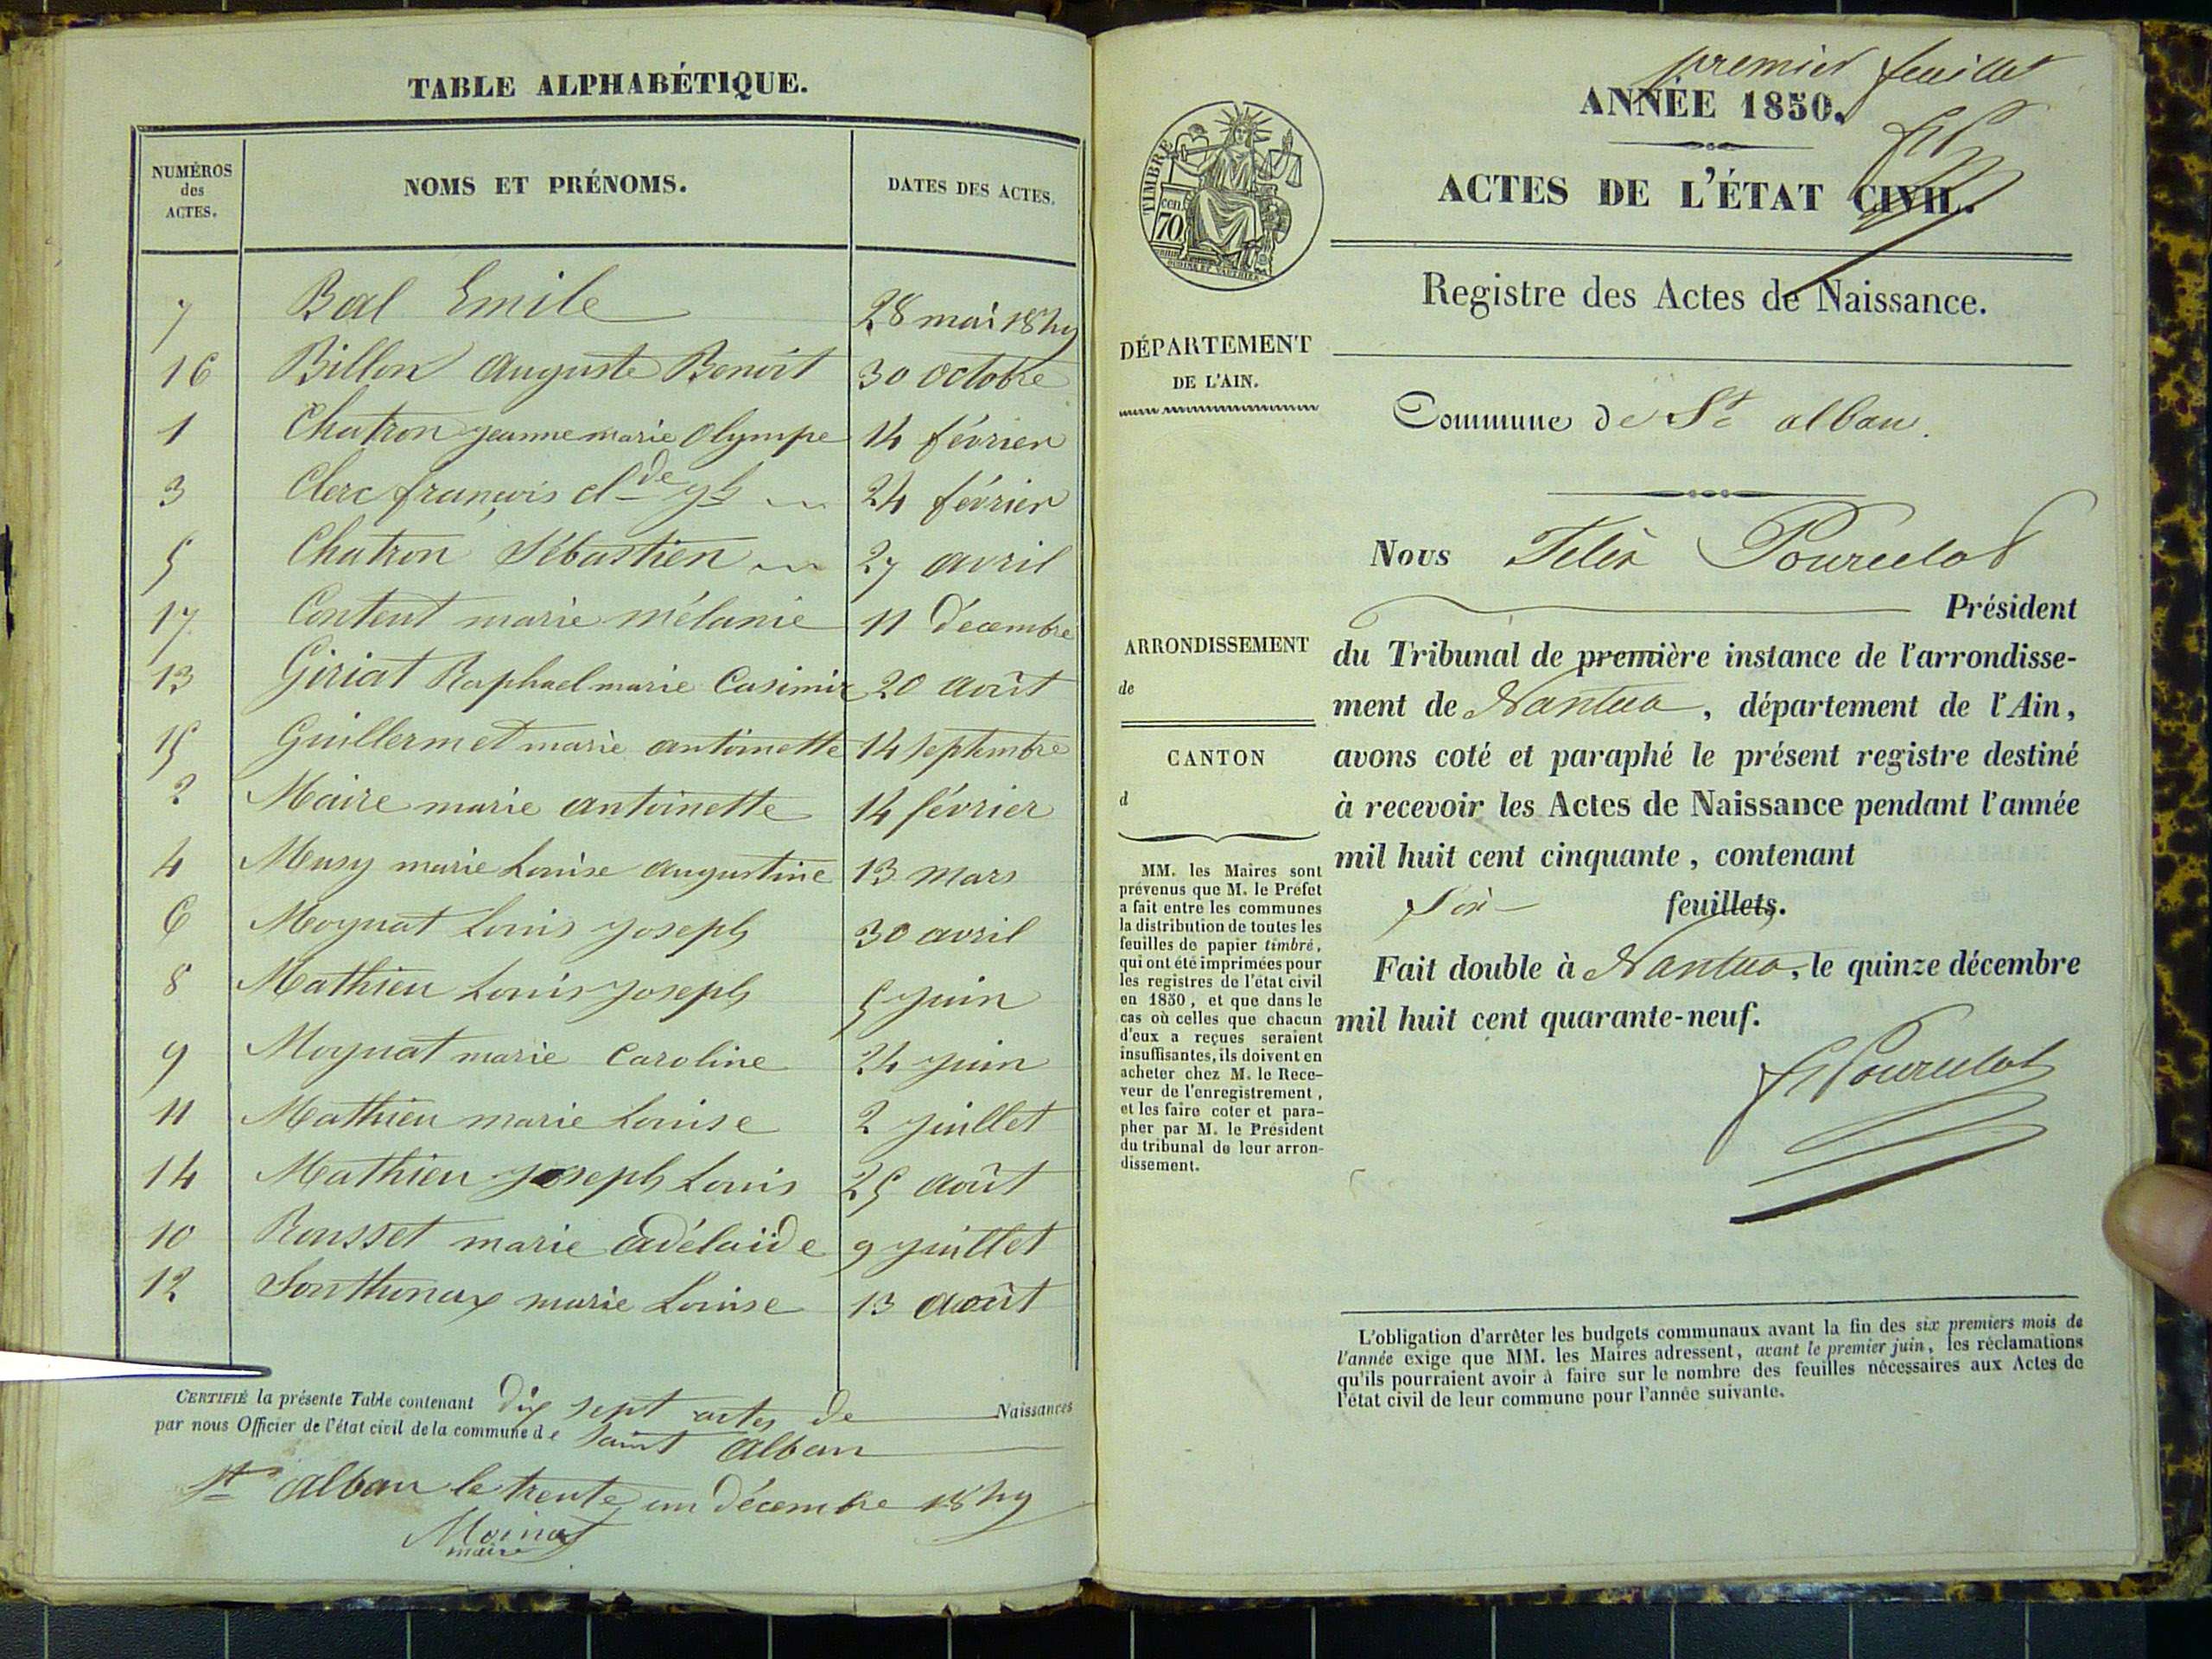 TABLE ALPHABÉTIQUE.
NUMÉROS des ACTES. NOMS ET PRÉNOMS. DATES DES ACTES.
7 Bal Emile 28 mai 1849
16 Billon auguste Benoit 30 octobre
1 Chatron jeanne marie Olympe 14 février
3 Clerc françois cl^de 24 février
5 Chatron Sébastien 27 avril
17 Content marie mélanie 11 décembre
13 Giriat Raphael marie Casimir 20 août
15 Guillermet marie antoinette 14 septembre
2 Maire marie antoinette 14 février
4 Musy marie Louise augustine 13 mars
6 Moynat Louis joseph 30 avril
8 Mathieu Louis joseph 5 juin
9 Moynat marie Caroline 24 juin
11 Mathieu marie Louise 2 juillet
14 Mathieu joseph Louis 25 août
10 Rousset marie adélaïde 9 juillet
12 Sonthonax marie Louise 13 août
CERTIFIÉ la présente Table contenant dix sept actes de Naissances
par nous Officier de l'état civil de la commune de saint alban
St alban le trente un décembre 1849
Moinat
maire
premier feuillet
ANNÉE 1850.
ACTES DE L'ÉTAT CIVIL.
TIMBRE
70 cen.
Registre des Actes de Naissance.
DÉPARTEMENT
DE L'AIN.
Commune de St alban.
Nous Félix Pourcelot
Président
du Tribunal de première instance de l'arrondisse-
ment de Nantua, département de l'Ain,
avons coté et paraphé le présent registre destiné
à recevoir les Actes de Naissance pendant l'année
mil huit cent cinquante, contenant
Six feuillets.
Fait double à Nantua, le quinze décembre
mil huit cent quarante-neuf.
F Pourcelot
ARRONDISSEMENT
de
CANTON
d
MM. les Maires sont
prévenus que M. le Préfet
a fait entre les communes
la distribution de toutes les
feuilles de papier timbré,
qui ont été imprimées pour
les registres de l'état civil
en 1850, et que dans le
cas où celles que chacun
d'eux a reçues seraient
insuffisantes, ils doivent en
acheter chez M. le Rece-
veur de l'enregistrement,
et les faire coter et para-
pher par M. le Président
du tribunal de leur arron-
dissement.
L'obligation d'arrêter les budgets communaux avant la fin des six premiers mois de
l'année exige que MM. les Maires adressent, avant le premier juin, les réclamations
qu'ils pourraient avoir à faire sur le nombre des feuilles nécessaires aux Actes de
l'état civil de leur commune pour l'année suivante.